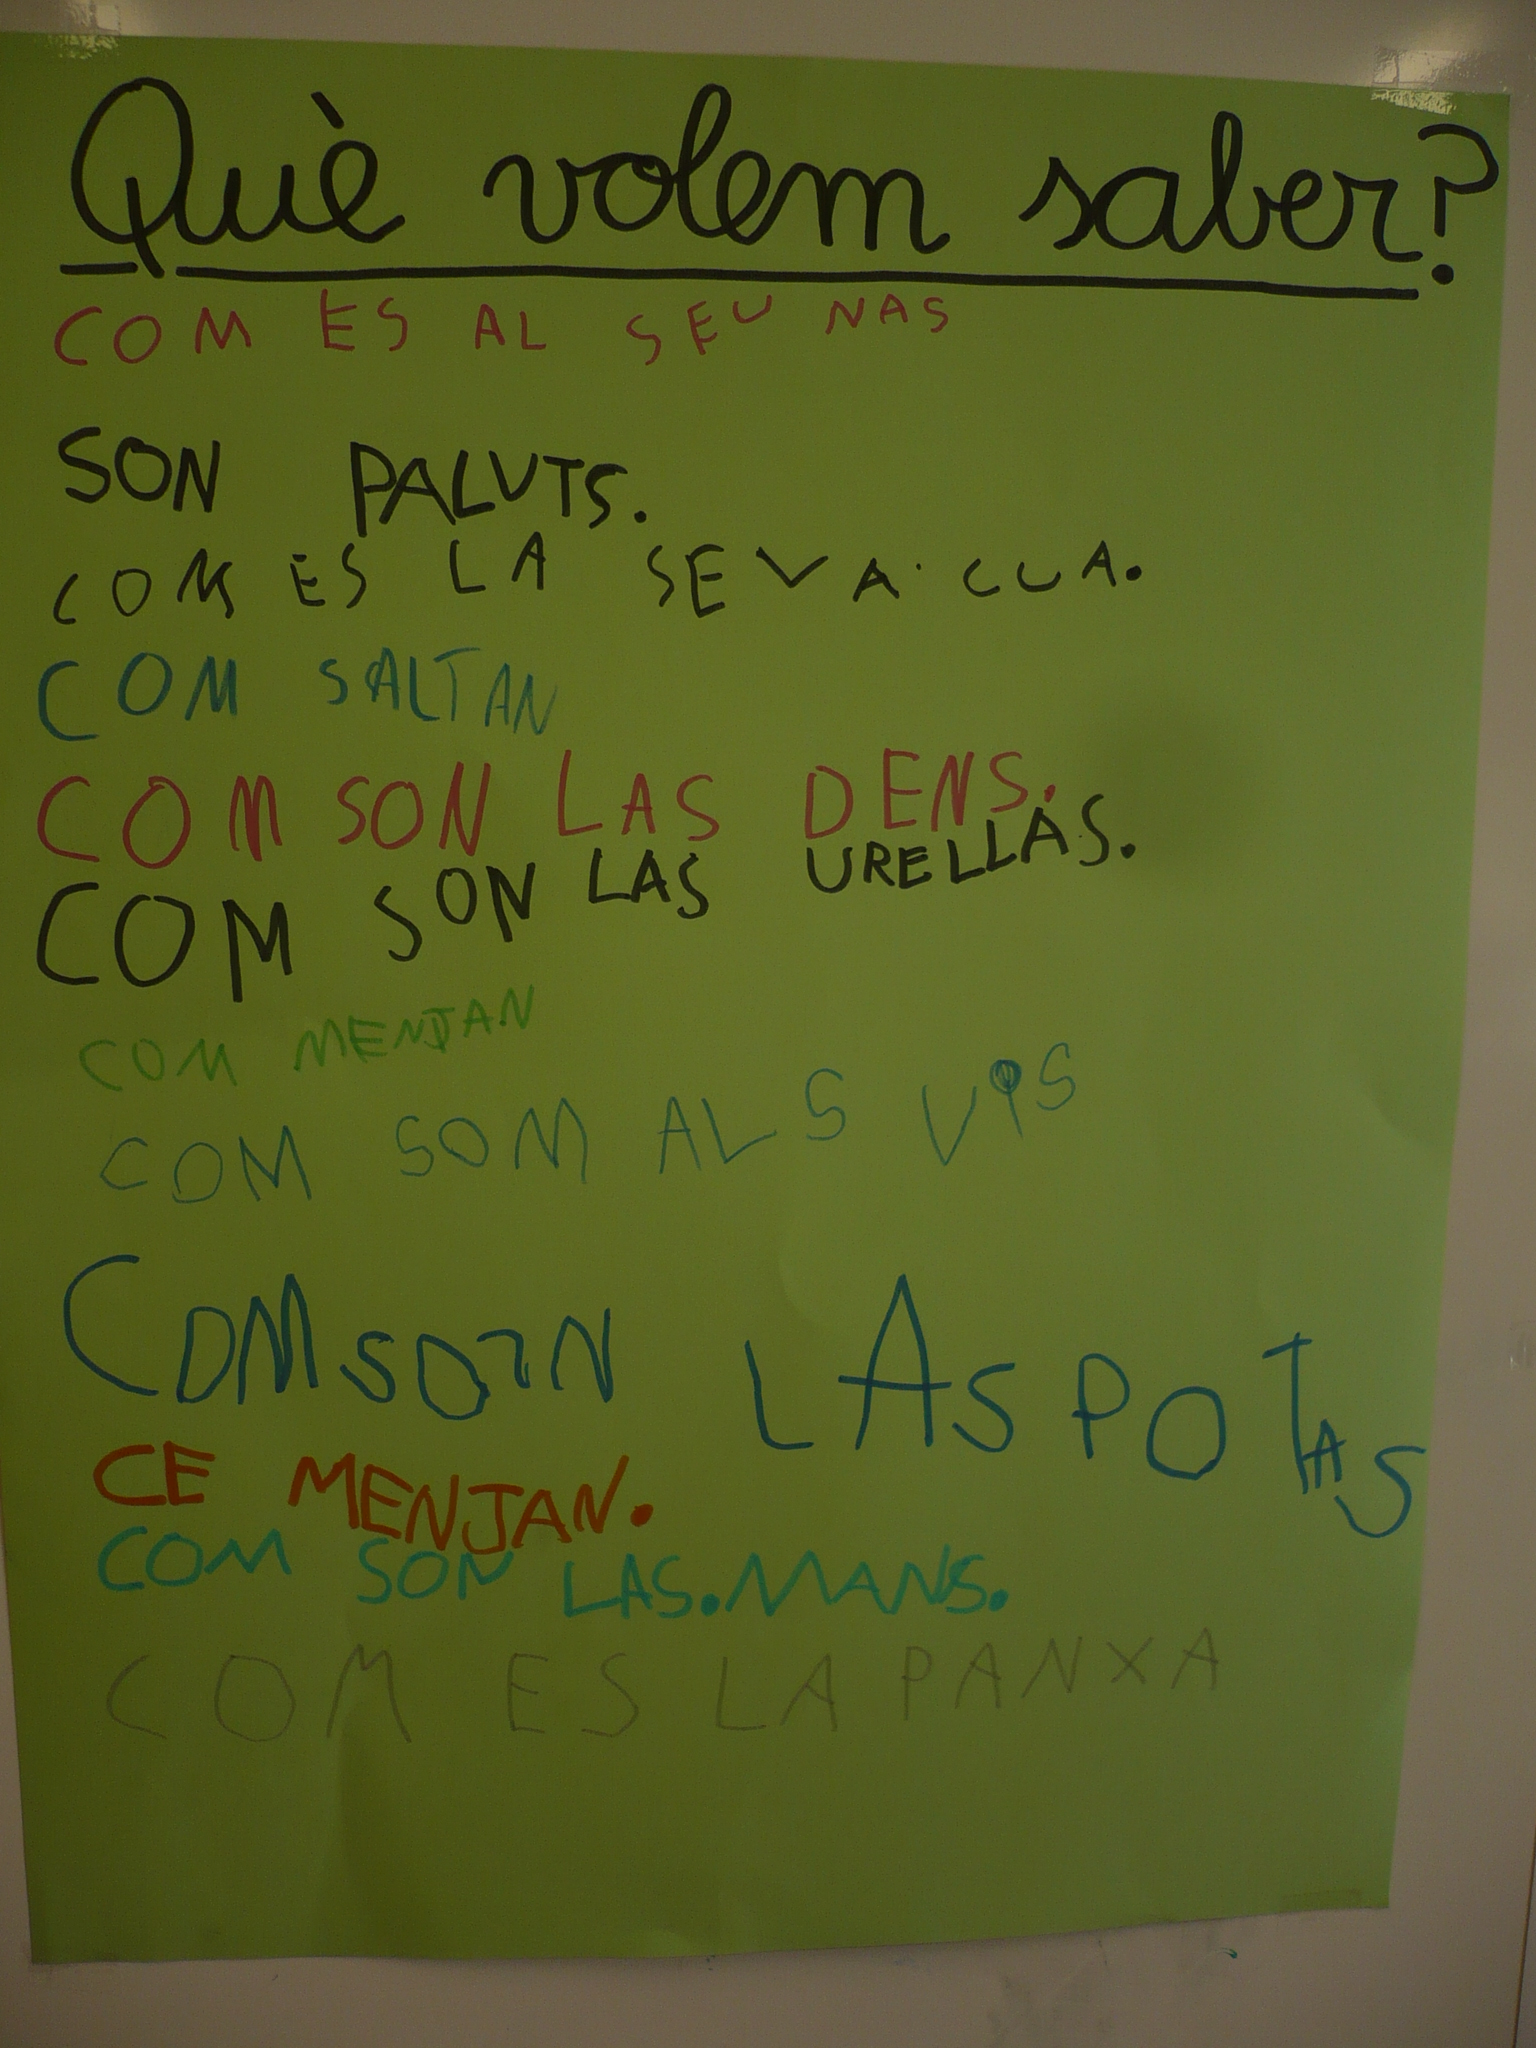 Què volem saber?
COM ES AL SEU NAS
SON PALUTS.
COM ES LA SEVA. CUA.
COM SALTAN
COM SON LAS DENS.
COM SON LAS URELLAS.
COM MENJAN
COM SOM ALS
COM SON LAS POTAS
CE MENJAN.
COM SON LAS.MANS.
COM ES LA PANXA